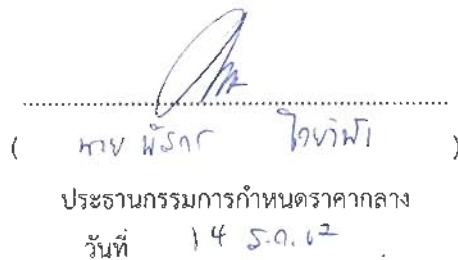 ( นาย )
ประธานกรรมการกำหนดราคากลาง
วันที่ 14 ธ.ค. 62